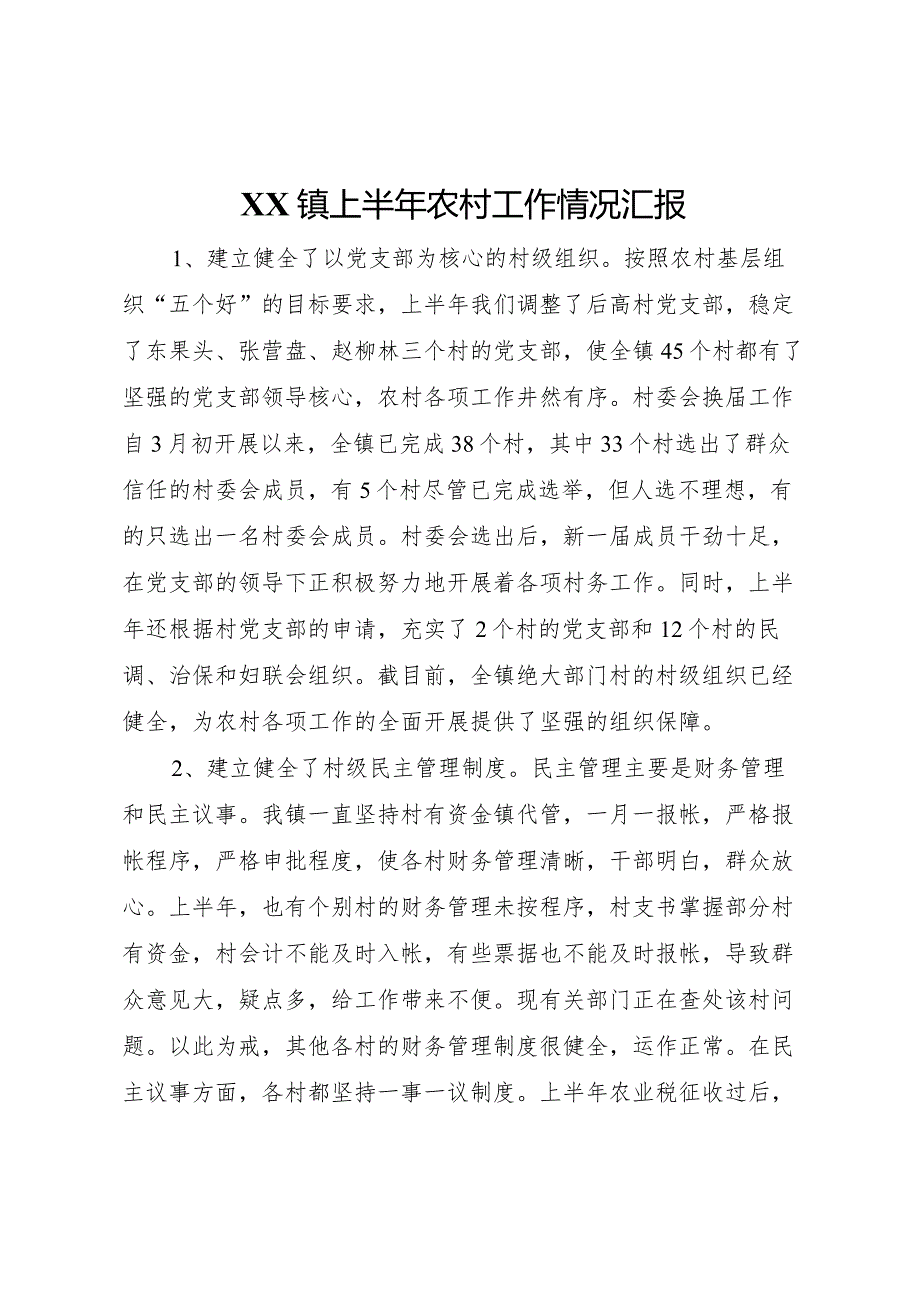 XX 镇上半年农村工作情况汇报
1、建立健全了以党支部为核心的村级组织。按照农村基层组
织“五个好”的目标要求，上半年我们调整了后高村党支部，稳定
了东果头、张营盘、赵柳林三个村的党支部，使全镇 45 个村都有了
坚强的党支部领导核心，农村各项工作井然有序。村委会换届工作
自 3 月初开展以来，全镇已完成 38 个村，其中 33 个村选出了群众
信任的村委会成员，有 5 个村尽管已完成选举，但人选不理想，有
的只选出一名村委会成员。村委会选出后，新一届成员干劲十足，
在党支部的领导下正积极努力地开展着各项村务工作。同时，上半
年还根据村党支部的申请，充实了 2 个村的党支部和 12 个村的民
调、治保和妇联会组织。截目前，全镇绝大部门村的村级组织已经
健全，为农村各项工作的全面开展提供了坚强的组织保障。
2、建立健全了村级民主管理制度。民主管理主要是财务管理
和民主议事。我镇一直坚持村有资金镇代管，一月一报帐，严格报
帐程序，严格申批程度，使各村财务管理清晰，干部明白，群众放
心。上半年，也有个别村的财务管理未按程序，村支书掌握部分村
有资金，村会计不能及时入帐，有些票据也不能及时报帐，导致群
众意见大，疑点多，给工作带来不便。现有关部门正在查处该村问
题。以此为戒，其他各村的财务管理制度很健全，运作正常。在民
主议事方面，各村都坚持一事一议制度。上半年农业税征收过后，